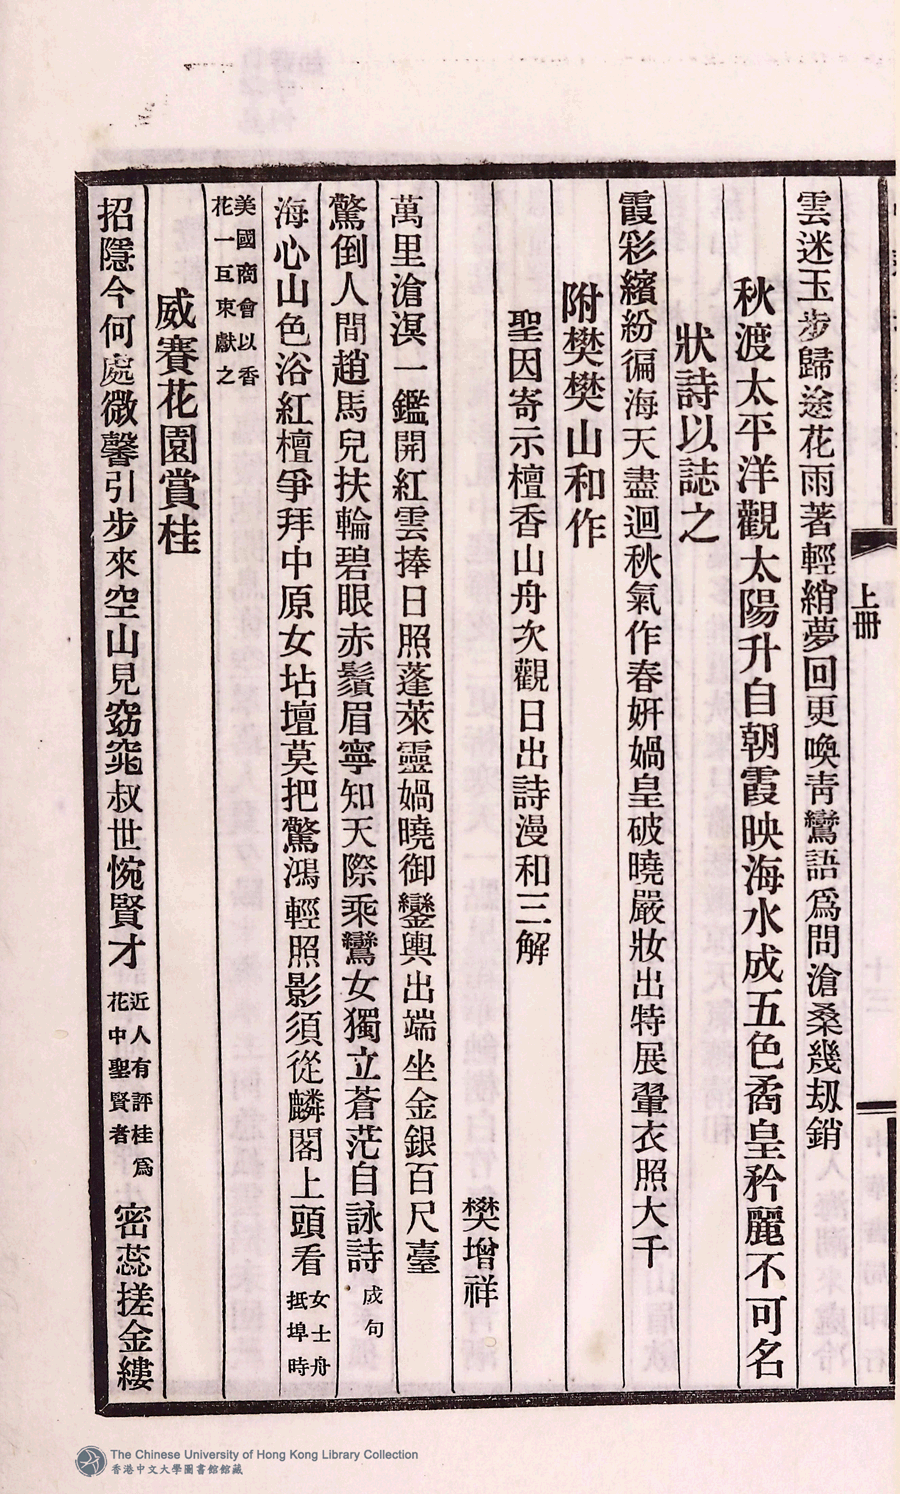 上册
雲迷玉步歸途花雨著輕綃夢回更喚靑鸞語爲問滄桑幾刼銷
秋渡太平洋觀太陽升自朝霞映海水成五色矞皇矜麗不可名
狀詩以誌之
霞彩繽紛徧海天盡迴秋氣作春姸媧皇破曉嚴妝出特展翬衣照大千
附樊樊山和作
聖因寄示檀香山舟次觀日出詩漫和三解
樊增祥
萬里滄溟一鑑開紅雲捧日照蓬萊靈媧曉御鑾輿出端坐金銀百尺臺
驚倒人間趙馬兒扶輪碧眼赤鬚眉寧知天際乘鸞女獨立蒼茫自詠詩成句
海心山色浴紅檀爭拜中原女坫壇莫把驚鴻輕照影須從麟閣上頭看女士舟
抵埠時
美國商會以香
花一互束獻之
威賽花園賞桂
招隱今何處微馨引步來空山見窈窕叔世惋賢才近人有評桂爲
花中聖賢者密蕊搓金縷
The Chinese University of Hong Kong Library Collection
香港中文大學圖書館館藏